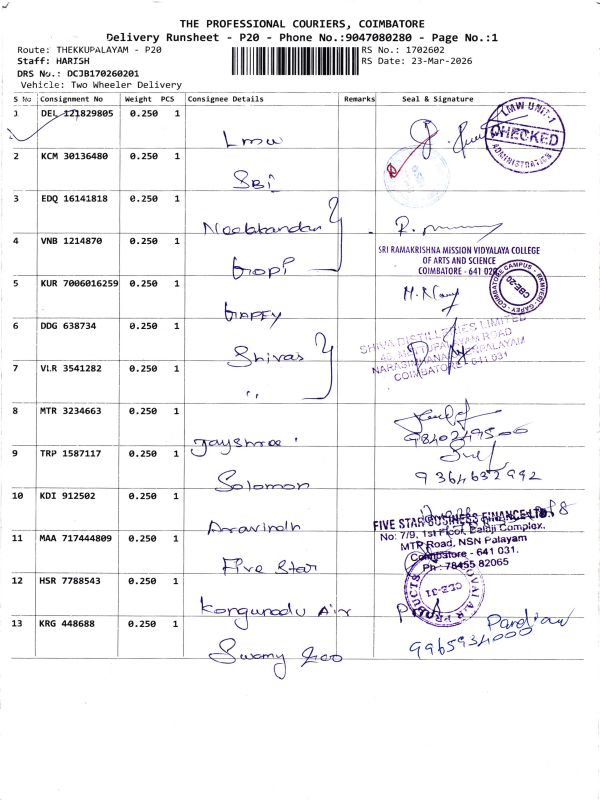 THE PROFESSIONAL COURIERS, COIMBATORE
Delivery Runsheet - P20 - Phone No.:9047080280 - Page No.:1
Route: THEKKUPALAYAM - P20
RS No.: 1702602
Staff: HARISH
RS Date: 23-Mar-2026
DRS No.: DCJB170260201
Vehicle: Two Wheeler Delivery
S No Consignment No Weight PCS Consignee Details Remarks Seal & Signature
1 DEL 121829805 0.250 1
Lmw
LMW UNIT-1
CHECKED
ADMINISTRATION
2 KCM 30136480 0.250 1
SBI
3 EDQ 16141818 0.250 1
Neelakandan
4 VNB 1214870 0.250 1
Gopi
SRI RAMAKRISHNA MISSION VIDYALAYA COLLEGE
OF ARTS AND SCIENCE
COIMBATORE - 641 020
5 KUR 7006016259 0.250 1
CBE-20
6 DDG 638734 0.250 1
Shivas
SHIVA DISTILLERIES LIMITED
COIMBATORE - 641 031
7 VLR 3541282 0.250 1
"
8 MTR 3234663 0.250 1
Jayshree
9840249500
9 TRP 1587117 0.250 1
Solomon
9364632992
10 KDI 912502 0.250 1
Aravindh
FIVE STAR BUSINESS FINANCE LTD.
No: 7/9, 1st Floor, Balaji Complex,
MTP Road, NSN Palayam
Coimbatore - 641 031.
Ph : 78455 82065
11 MAA 717444809 0.250 1
Five Star
12 HSR 7788543 0.250 1
Kongunadu Air
KOVAI AIR PRODUCTS
CBE-31
13 KRG 448688 0.250 1
Swamy
Pandian
9965934000